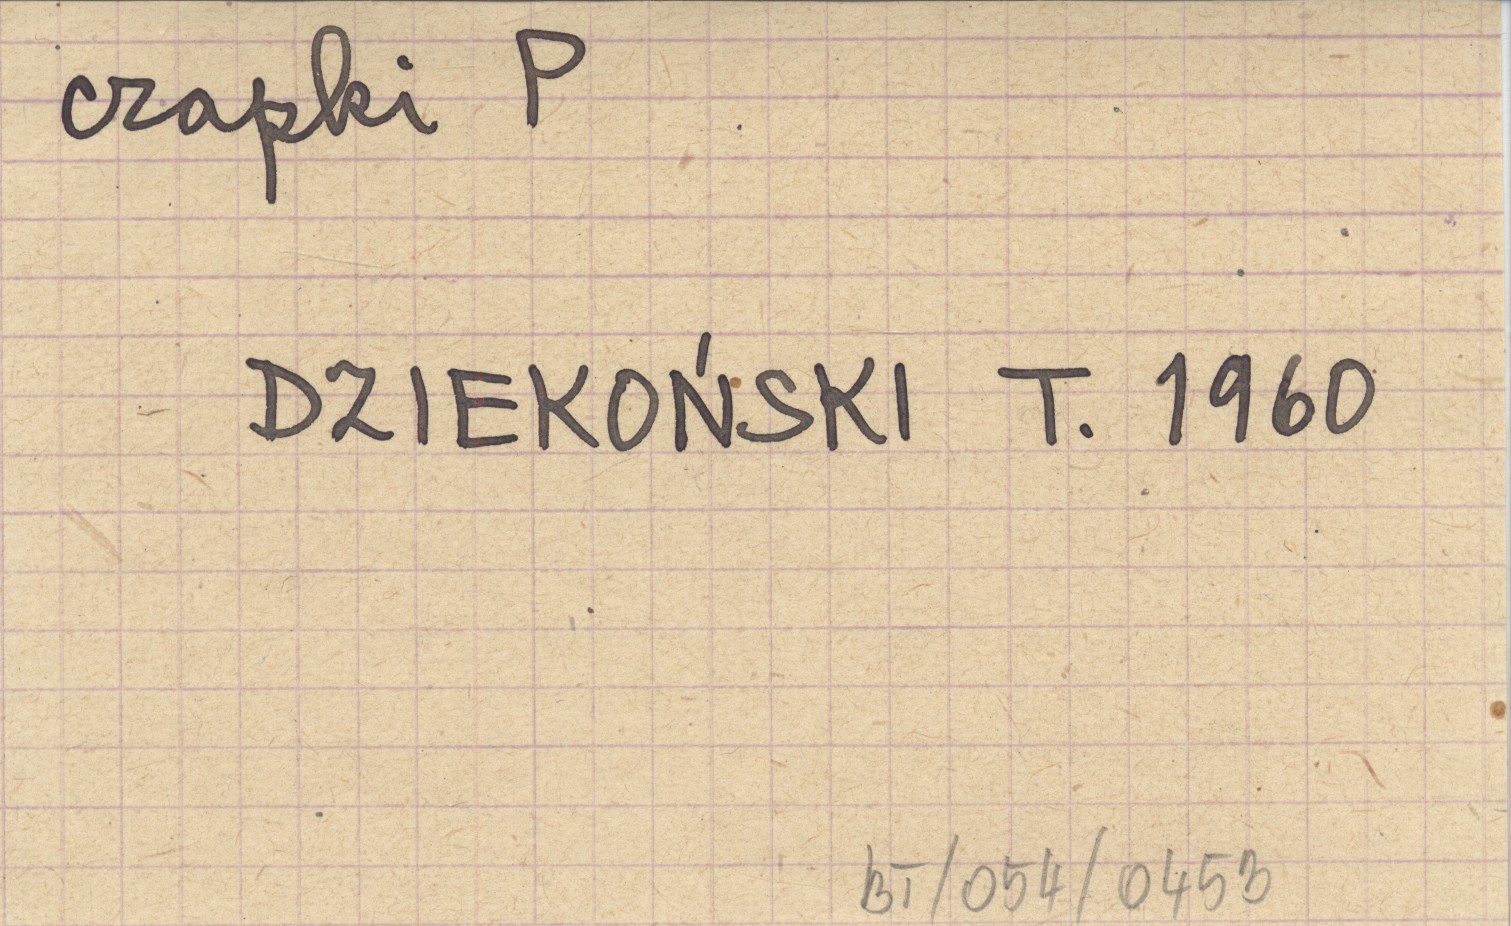 czapki P
DZIEKOŃSKI T. 1960
BT/054/0453